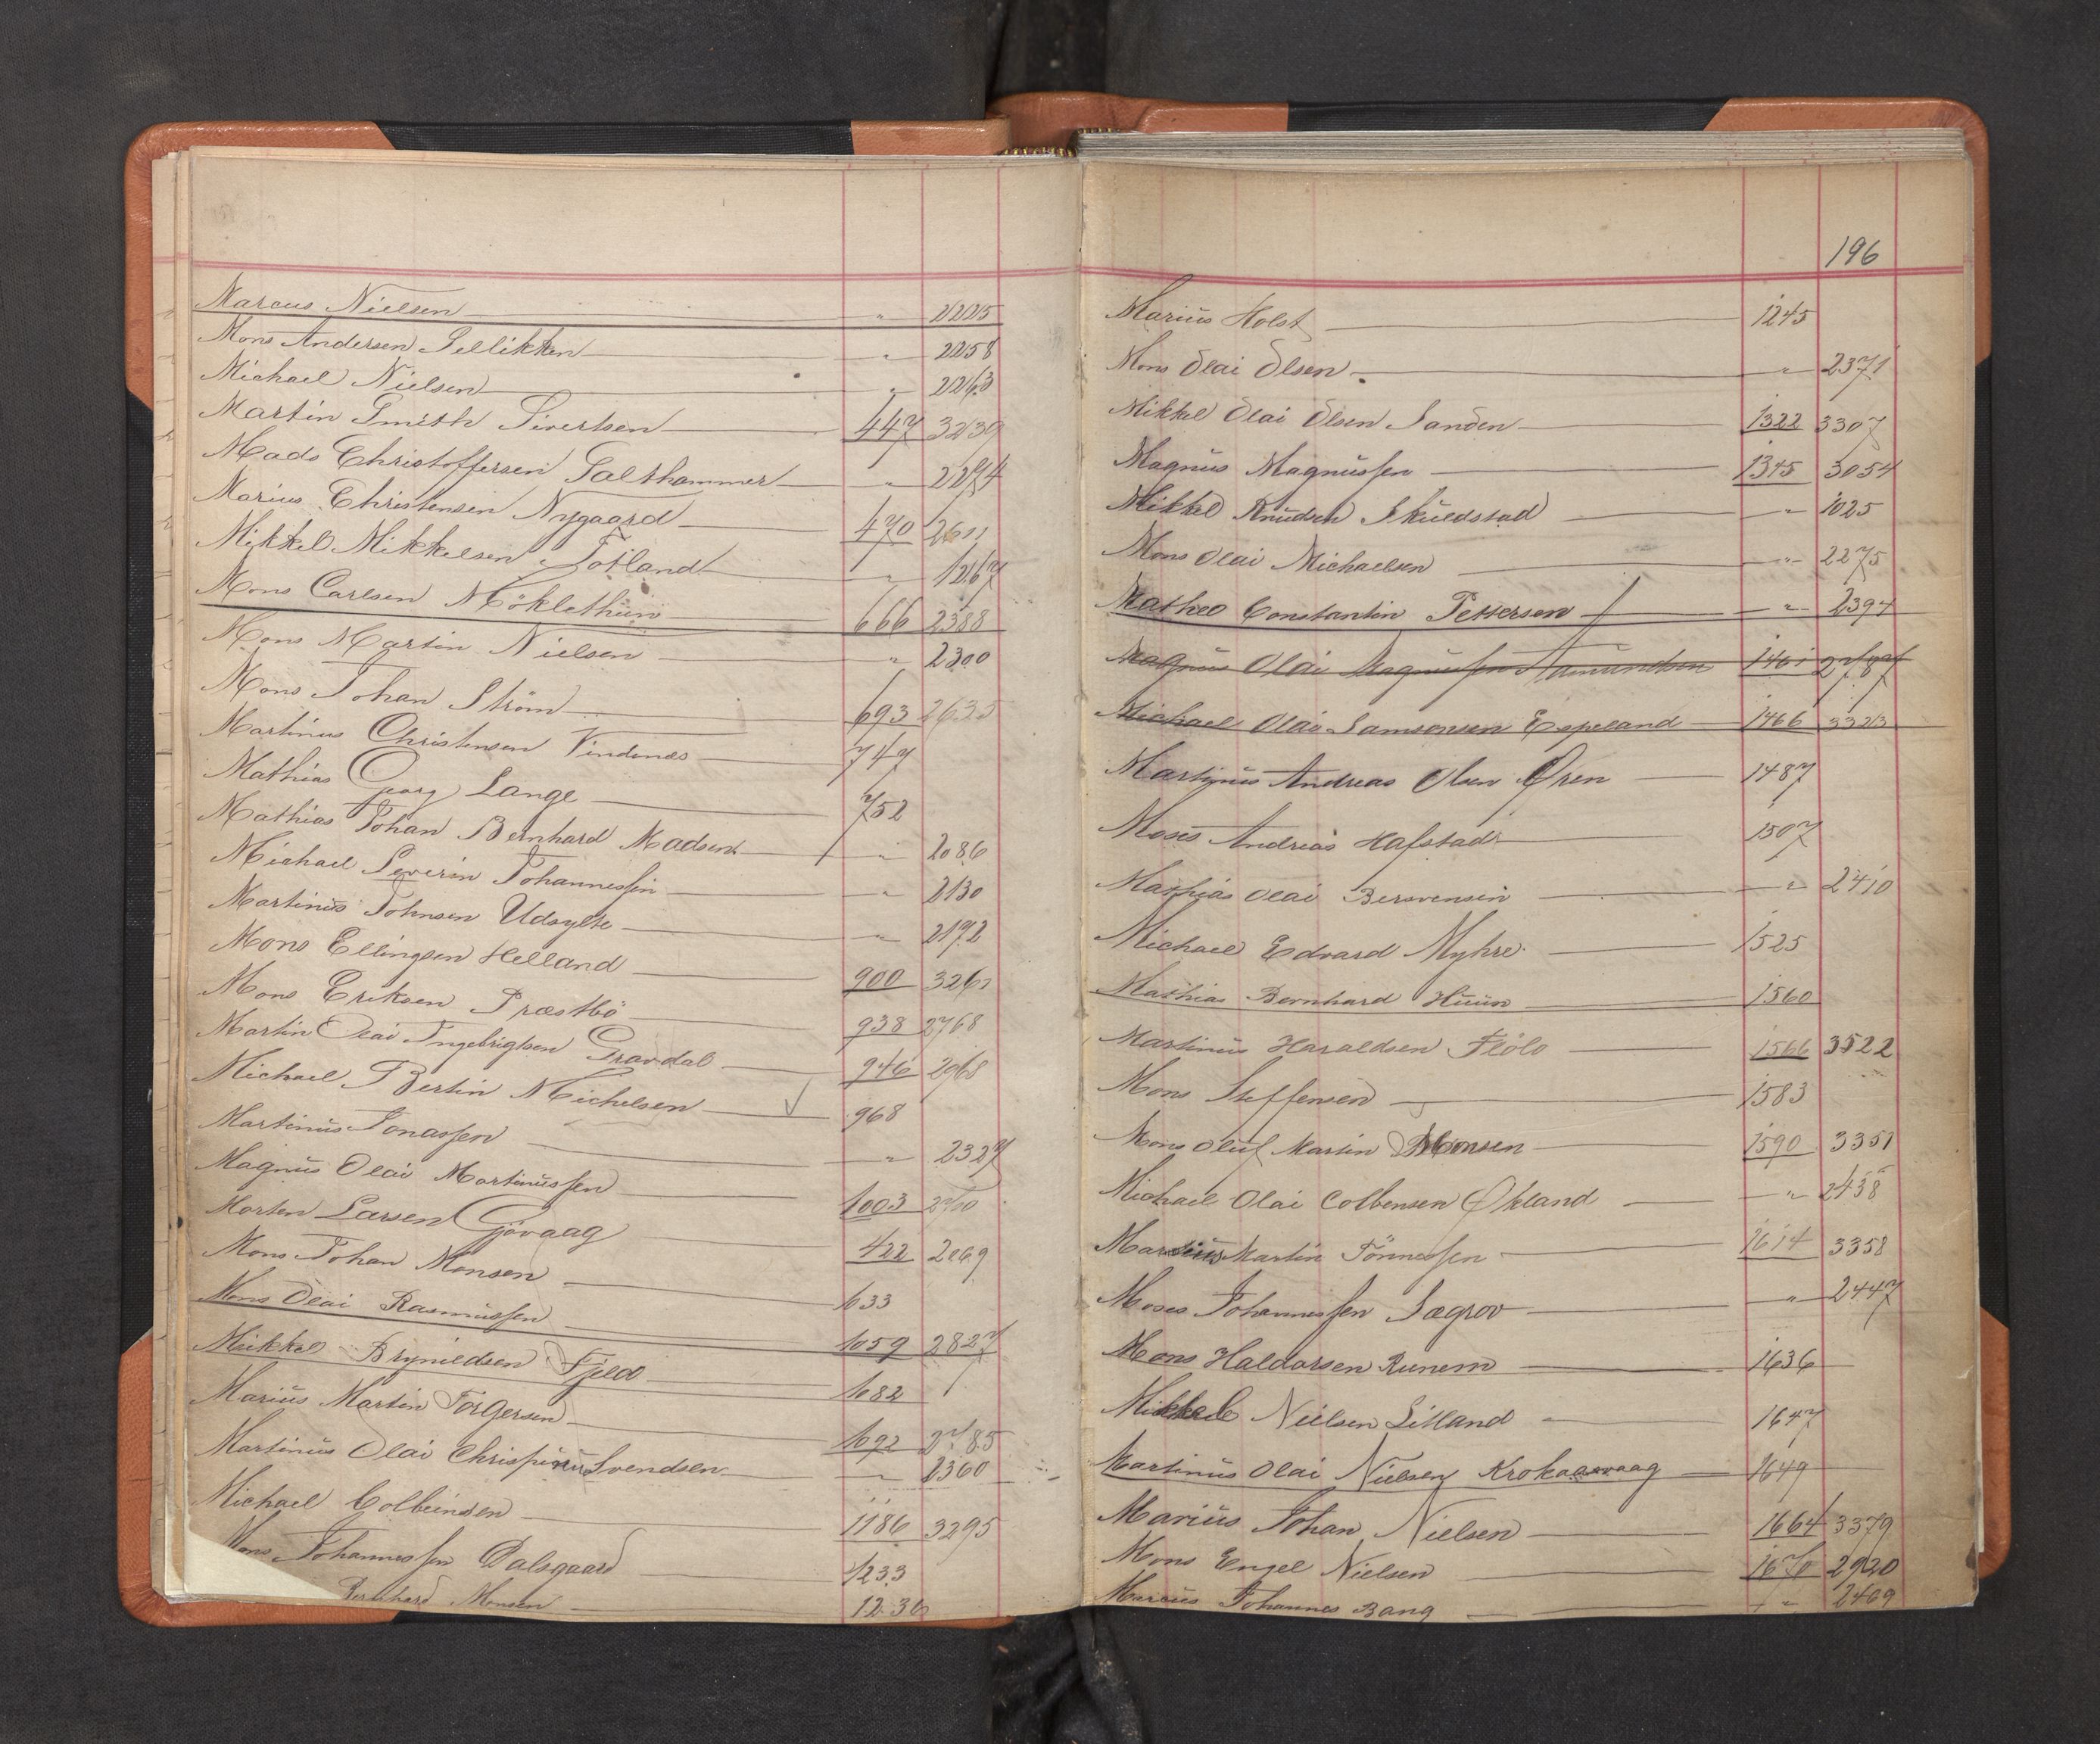 Marcus Nielsen " 2225
Mons Andersen Sellikken " 2258
Michael Nielsen " 2263
Martin Smith Sivertsen 447 3239
Mads Christoffersen Salthammer " 2274
Marius Christensen Nygaard 470 2611
Mikkel Mikkelsen Totland " 1267
Mons Carlsen Möklethun 666 2388
Mons Martin Nielsen " 2300
Mons Johan Ström 693 2635
Martinus Christensen Vindenes 747
Mathias Georg Lange 752
Mathias Johan Bernhard Madsen " 2086
Michael Severin Johannessen " 2130
Martinus Johnsen Udsylte " 2192
Mons Ellingsen Helland 900 3261
Mons Eriksen Præstbö 938 2768
Martin Olai Ingebrigtsen Gravdal 946 2968
Michael Bertin Michelsen 968
Martinus Jonassen " 2327
Magnus Olai Martinussen 1003 2760
Morten Larsen Gjövaag 422 2069
Mons Johan Monsen 633
Mons Olai Rasmussen 1059 2827
Mikkel Brynildsen Fjeld 1082
Marius Martin Törgersen 1092 2785
Martinus Olai Chrispinus Svendsen " 2360
Michael Colbeinsen 1186 3295
Mons Johannessen Dalsgaard 1233
Bernhard Monsen 1236
196
Marius Holst 1245
Mons Olai Olsen " 2371
Mikkel Olai Olsen Sanden 1322 3307
Magnus Magnussen 1345 3054
Mikkel Knudsen Skuldstad " 1025
Mons Olai Michaelsen " 2275
Matheo Constantin Pettersen " 2394
Magnus Olai Magnussen Samundsen 1461 2787
Michael Olai Samsonsen Espeland 1466 3323
Martinus Andreas Olsen Øren 1487
Moses Andreas Hafstad 1507
Mathias Olai Bersvensen " 2410
Michael Edvard Myhre 1525
Mathias Bernhard Huun 1560
Martinus Haraldsen Flölo 1566 3522
Mons Steffensen 1583
Mons Oluf Martin Monsen 1590 3351
Michael Olai Colbensen Økland " 2438
Marius Martin Tönnessen 1614 3358
Moses Johannessen Sægrov " 2447
Mons Haldorsen Runem 1636
Mikkel Nielsen Litland 1647
Martinus Olai Nielsen Krokaasvaag 1649
Marius Johan Nielsen 1664 3379
Mons Engel Nielsen 1670 2920
Marcus Johannes Bang " 2469